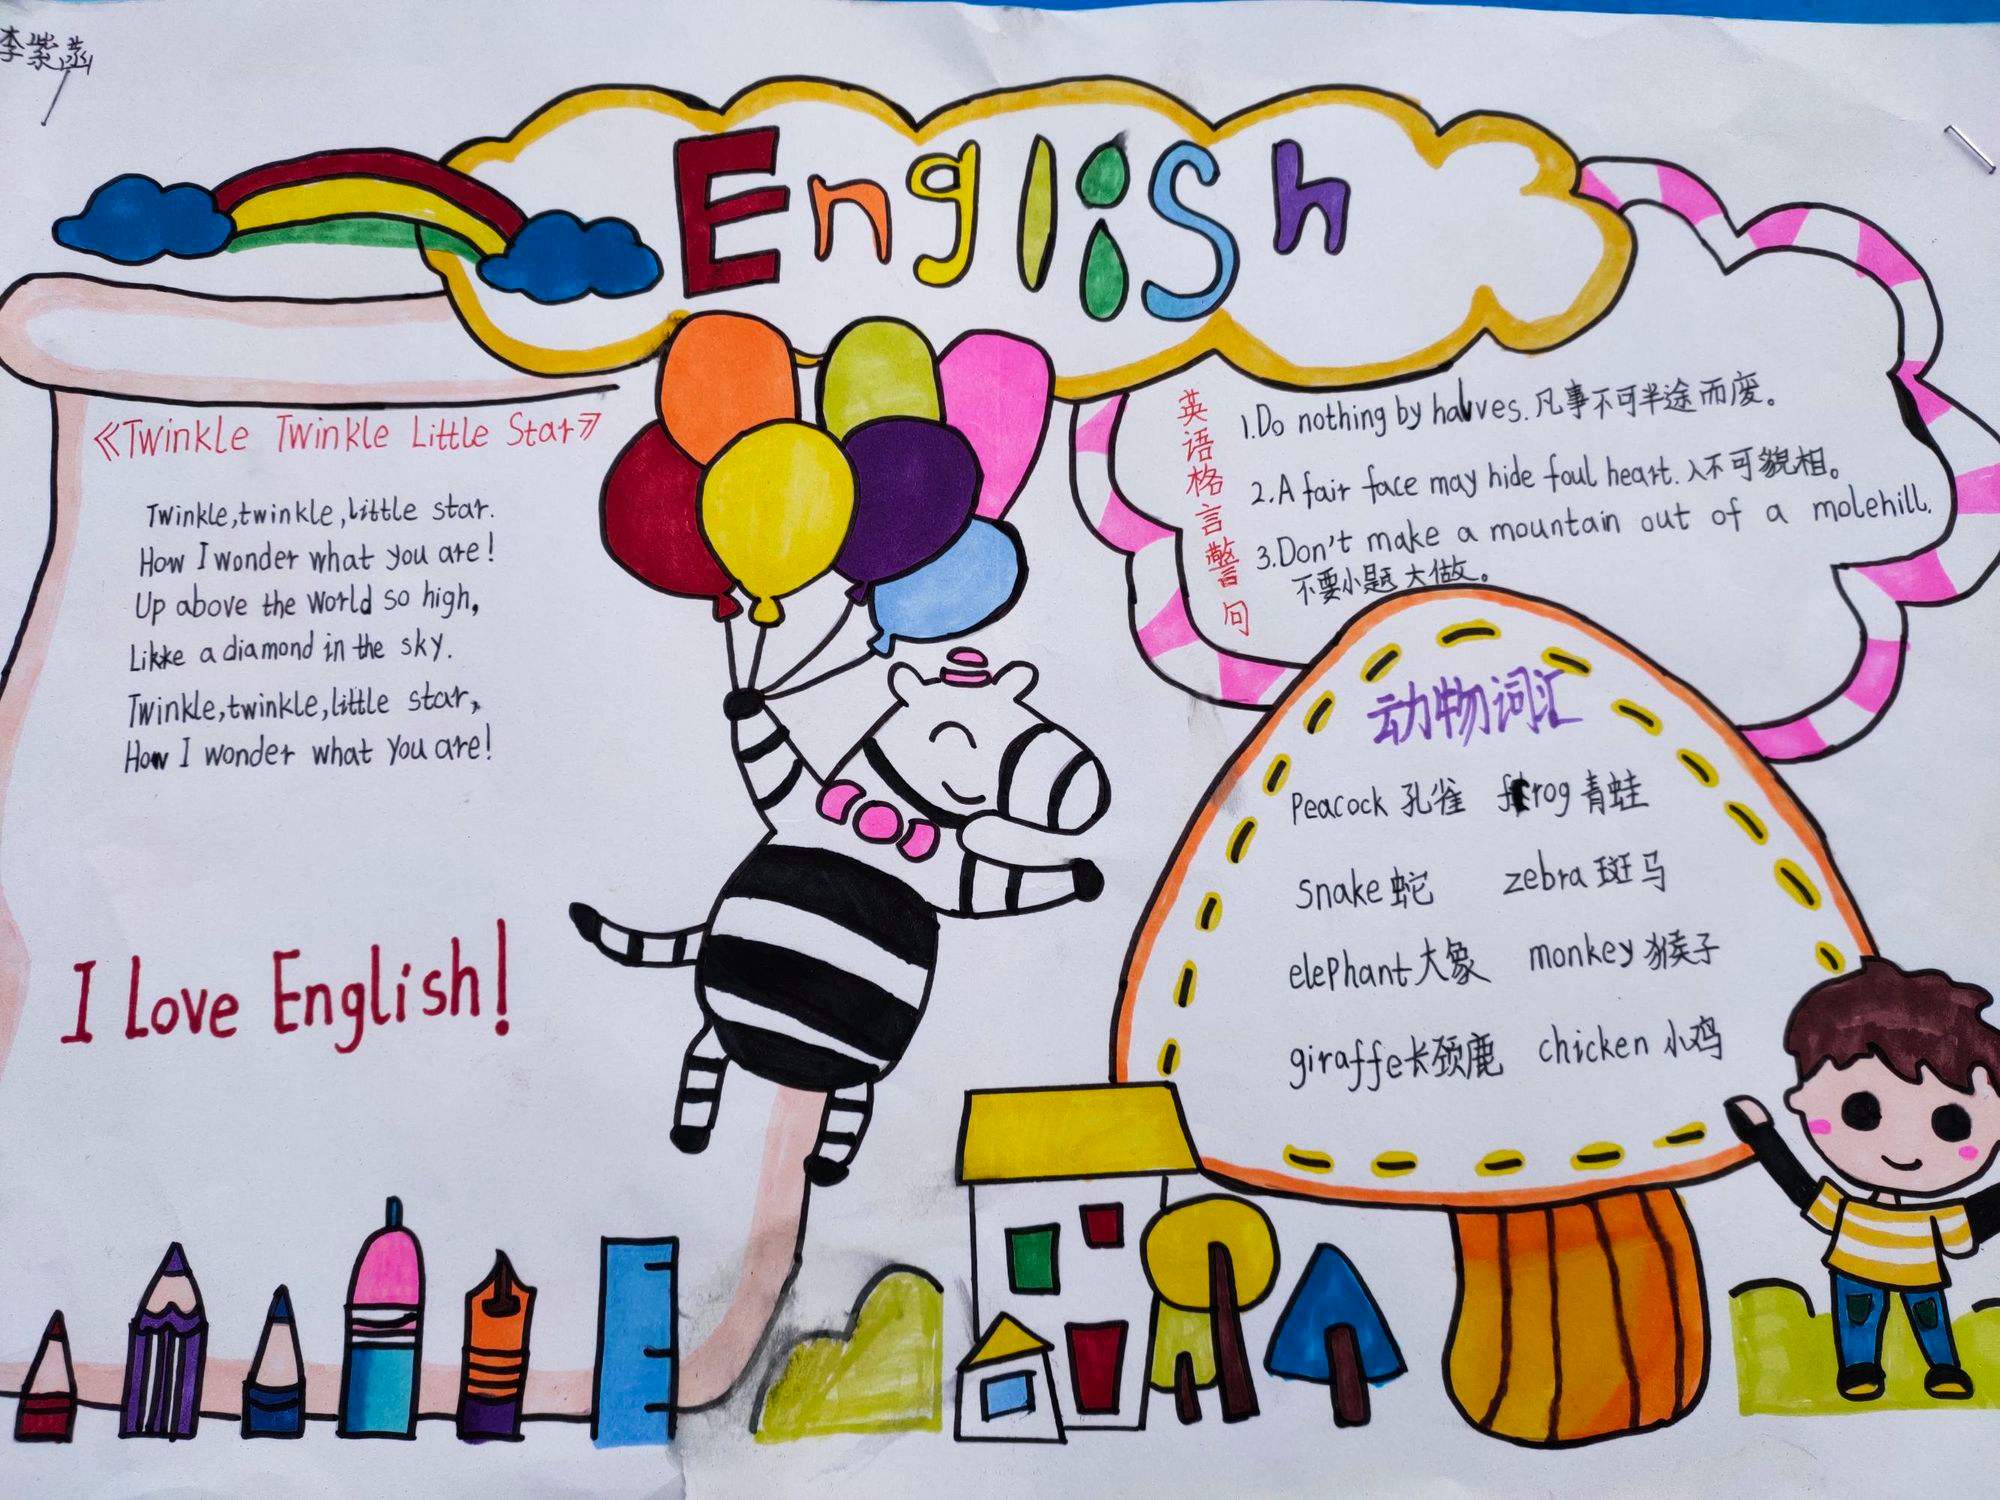 李紫涵
English
《Twinkle Twinkle Little Star》
Twinkle, twinkle, little star.
How I wonder what you are!
Up above the world so high,
Likke a diamond in the sky.
Twinkle, twinkle, little star,
How I wonder what you are!
I Love English!
英语格言警句
1.Do nothing by halves.凡事不可半途而废。
2.A fair face may hide foul heart.人不可貌相。
3.Don't make a mountain out of a molehill.
不要小题大做。
动物词汇
Peacock 孔雀 frog 青蛙
snake 蛇 zebra 斑马
elephant 大象 monkey 猴子
giraffe 长颈鹿 chicken 小鸡